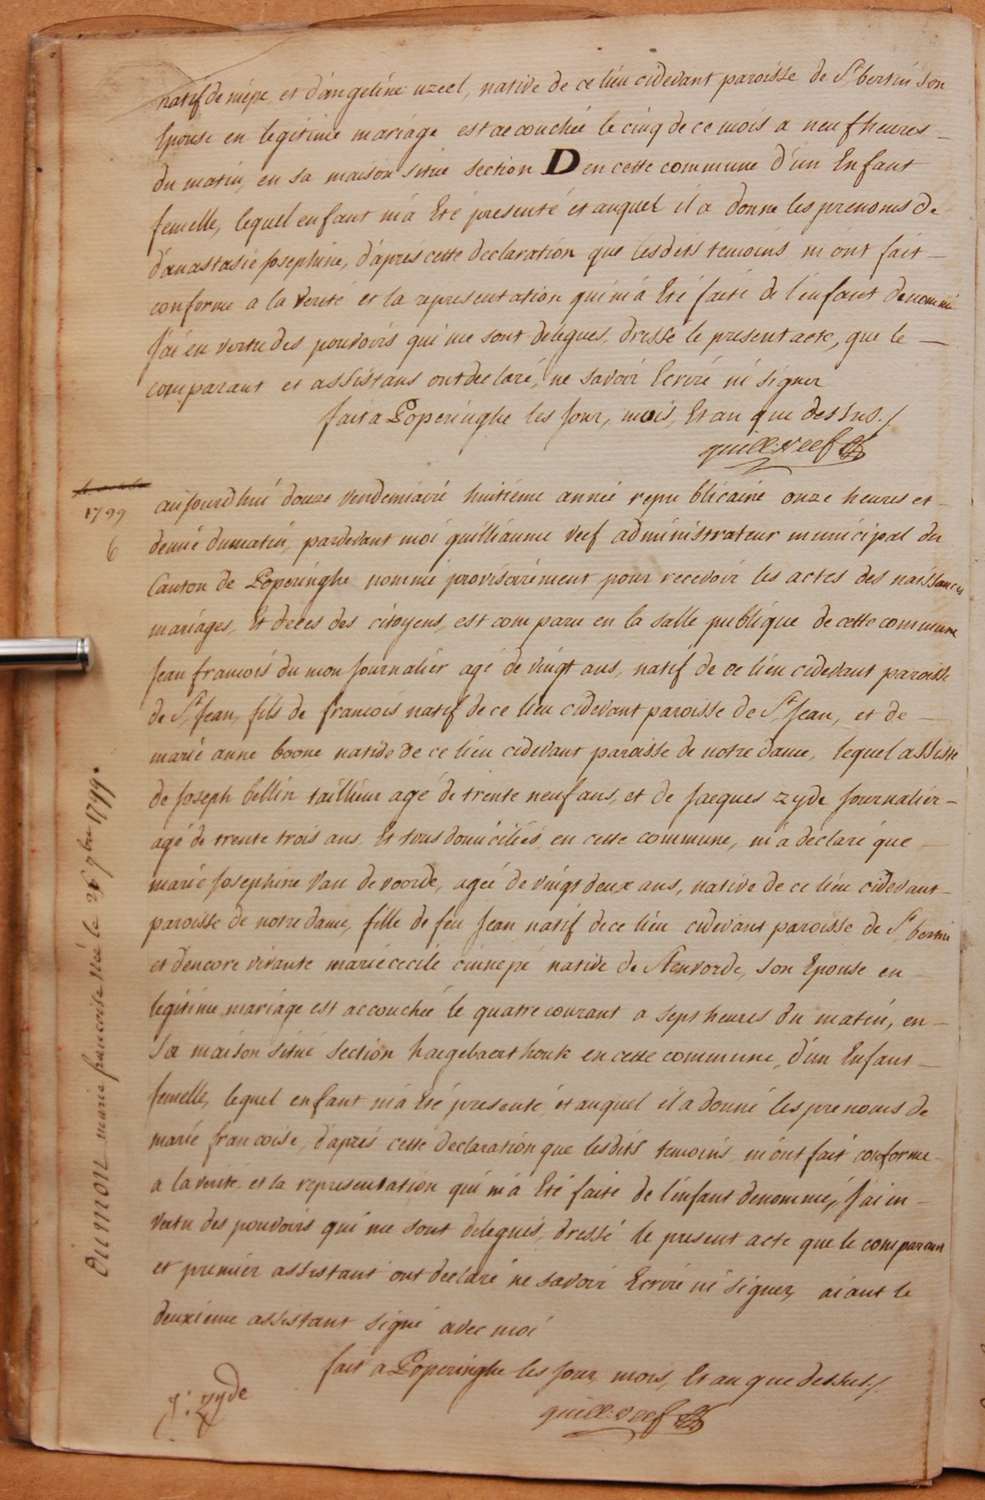 natif de nipe et d'angeline uzeel, native de ce lieu cidevant paroisse de St bertin son
Epouse en legitime mariage est accouchée le cinq de ce mois a neuf heures
du matin, en sa maison situé section D en cette commune d'un Enfant
femelle, lequel enfant m'a Eté presenté et auquel il a donné les prenoms de
d'anastasie josephine, d'après cette declaration que lesdits temoins m'ont fait
conforme a la verité et la representation qui m'a Eté faite de l'enfant denommé
J'ai en vertu des pouvoirs qui me sont delegués, dressé le present acte, que le
comparant et assistans ont declaré, ne savoir Ecrire ni signer
fait a Poperinghe les jour, mois, Et an que dessus./
guill: veef
1799
6
aujourdhui douze vendemiaire huitieme année republicaine onze heures et
demie du matin, pardevant moi guilliaume veef administrateur municipal du
Canton de Poperinghe nommé provisoirement pour recevoir les actes des naissances
mariages, Et deces des citoyens, est comparu en la salle publique de cette commune
Jean francois du mon Journalier agé de vingt ans, natif de ce lieu cidevant paroisse
de St Jean, fils de francois natif de ce lieu cidevant paroisse de St Jean, et de
marie anne boone native de ce lieu cidevant paroisse de notre dame, lequel assisté
de Joseph bellin tailleur agé de trente neuf ans, et de Jacques zyde Journalier
agé de trente trois ans Et tous domiciliés en cette commune, m'a declaré que
marie Josephine van de voorde, ageé de vingt deux ans, native de ce lieu cidevant
paroisse de notre dame, fille de feu Jean natif de ce lieu cidevant paroisse de St bertin
et d'encore vivante marie cecile native de Stenvorde, son Epouse en
legitime mariage est accouchée le quatre courant a sept heures du matin, en
sa maison situé section haegebaert houk en cette commune, d'un Enfant
femelle, lequel enfant m'a Eté presenté, et auquel il a donné les prenoms de
marie francoise, d'après cette declaration que lesdits temoins m'ont fait conforme
a la verité et la representation qui m'a Eté faite de l'enfant denommé, J'ai en
vertu des pouvoirs qui me sont delegués, dressé le present acte que le comparant
et premier assistant ont declaré ne savoir Ecrire ni signer, aiant le
deuxieme assistant signé avec moi
fait a Poperinghe les jour, mois, Et an que dessus./
J: zyde
guill: veef
Dumon marie francoise née le 26 7bre 1799.